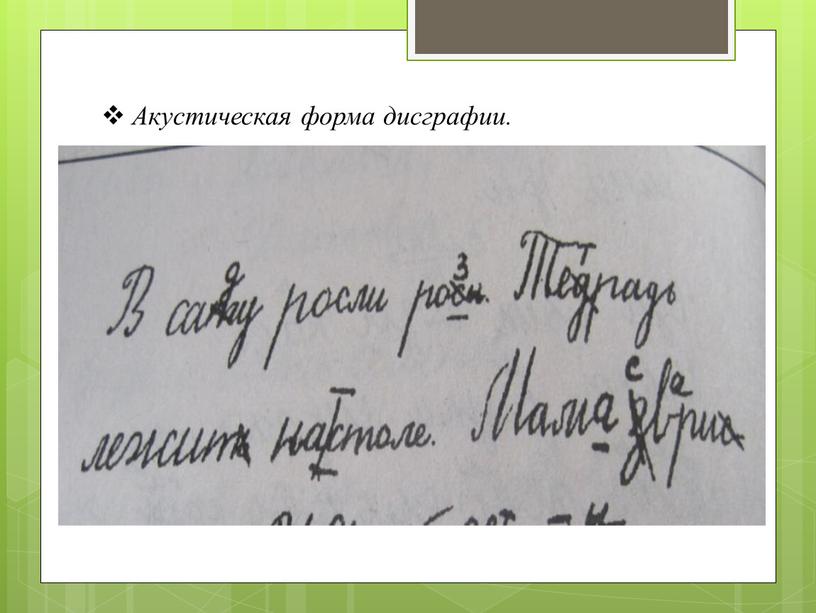 ❖ Акустическая форма дисграфии.
д з т
В сату росли росы. Тедрадь
с а
лежит настоле. Мама